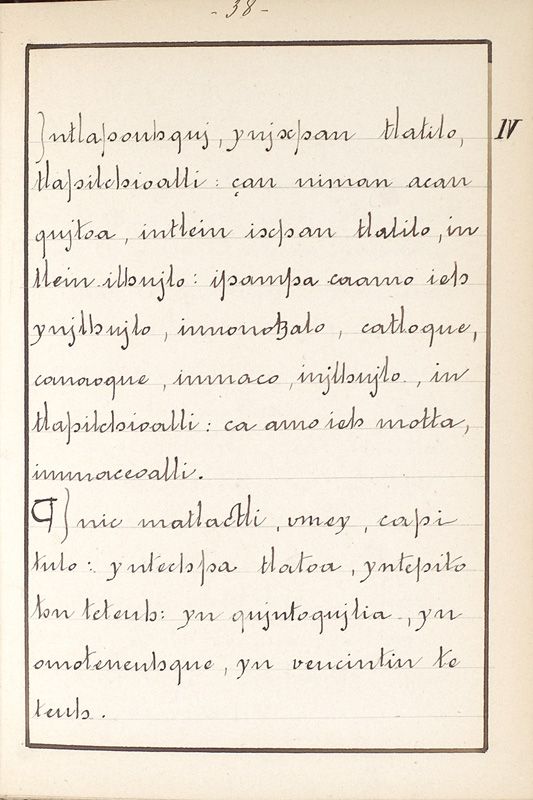 - 38 -
IV
Jntlapouhquj, ynjxpan tlatilo,
tlapilchioalli: çan niman acan
qujtoa, intlein ixpan tlalilo, in
tlein ilhujlo: ipampa caamo ieh
ynjlhujlo, innonoȝalo, catloque,
canaoque, inmaco, injlhujlo, in
tlapilchioalli: ca amo ieh motta,
inmaceoalli.
¶ Jnic matlactli, vmey, capi
tulo: yntechpa tlatoa, yntepito
ton teteuh: yn qujntoqujlia, yn
omoteneuhque, yn veucintin te
teuh.